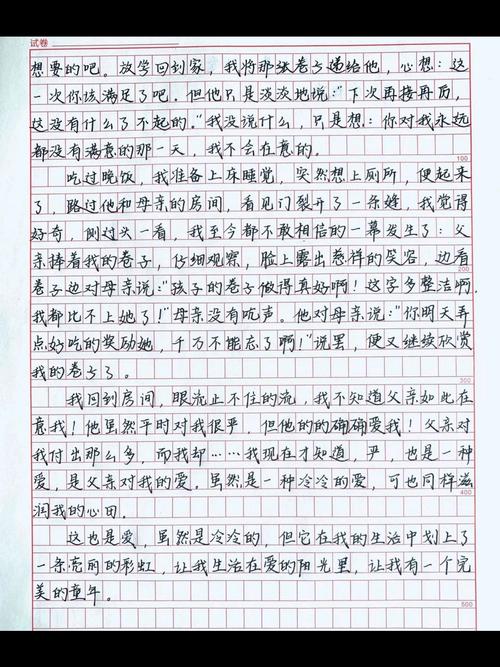 试卷
想要的吧。放学回到家，我将那张卷子递给他，心想：这
一次你该满足了吧。但他只是淡淡地说："下次再接再后，
这没有什么了不起的。"我没说什么，只是想：你对我永远
都没有满意的那一天，我不会在意的。
100
吃过晚饭，我准备上床睡觉，突然想上厕所，便起来
了，路过他和母亲的房间，看见门裂开了一条缝，我觉得
好奇，侧过头一看，我至今都不敢相信的一幕发生了：父
亲捧着我的卷子，仔细观察，脸上露出慈祥的笑容，边看
200
卷子边对母亲说："孩子的卷子做得真好啊！这字多整洁啊，
我都比不上她了！"母亲没有吭声。他对母亲说："你明天弄
点好吃的奖励她，千万不能忘了啊！"说罢，便又继续欣赏
我的卷子了。
300
我回到房间，眼流止不住的流，我不知道父亲如此在
意我！他虽然平时对我很严，但他的的确确爱我！父亲对
我付出那么多，而我却……我现在才知道，严，也是一种
爱，是父亲对我的爱。虽然是一种冷冷的爱，可也同样滋
400
润我的心田。
这也是爱，虽然是冷冷的，但它在我的生活中划上了
一条亮丽的彩虹，让我生活在爱的阳光里，让我有一个完
美的童年。
500